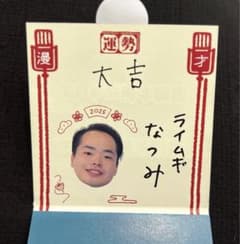 運勢
漫
才
大吉
2025
ライムギ
なつみ